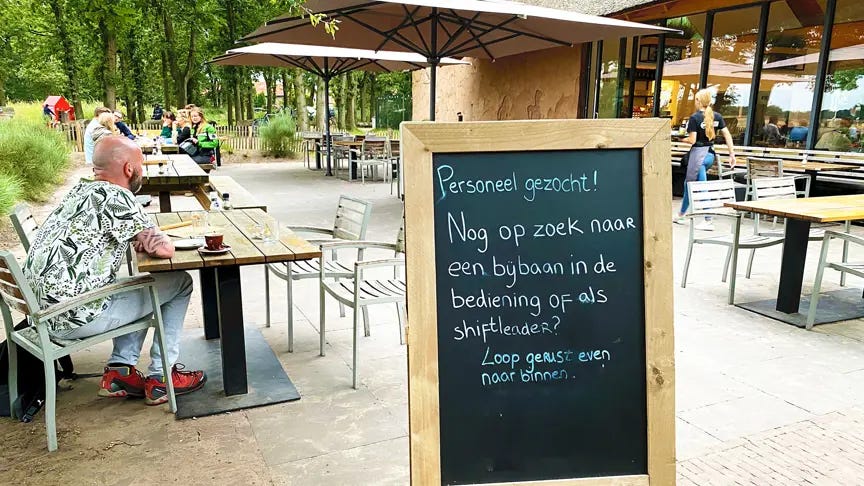 Personeel gezocht!
Nog op zoek naar
een bijbaan in de
bediening of als
shiftleader?
Loop gerust even
naar binnen.